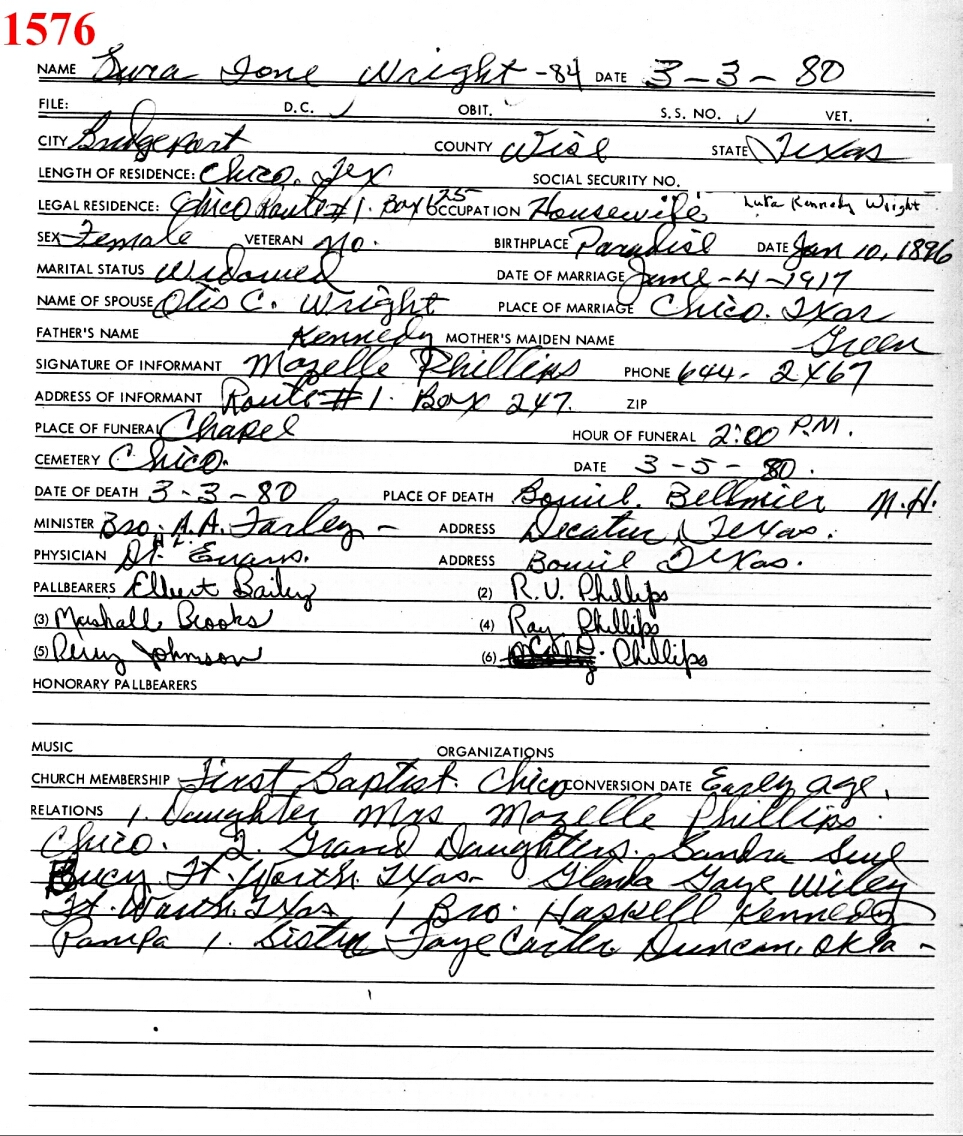 1576
NAME Lura Ione Wright - 84 DATE 3-3-80
FILE: D.C. ✓ OBIT. S.S. NO. ✓ VET.
CITY Bridgeport COUNTY Wise STATE Texas
LENGTH OF RESIDENCE: Chico, Tex SOCIAL SECURITY NO.
LEGAL RESIDENCE: Chico Route #1. Box 625 OCCUPATION Housewife Lura Kennedy Wright
SEX Female VETERAN No. BIRTHPLACE Paradise DATE Jan 10, 1896
MARITAL STATUS Widowed DATE OF MARRIAGE June-4-1917
NAME OF SPOUSE Otis C. Wright PLACE OF MARRIAGE Chico. Txas
FATHER'S NAME Kennedy MOTHER'S MAIDEN NAME Green
SIGNATURE OF INFORMANT Mozelle Phillips PHONE 644- 2467
ADDRESS OF INFORMANT Route #1. Box 247. ZIP
PLACE OF FUNERAL Chapel HOUR OF FUNERAL 2:00 P.M.
CEMETERY Chico. DATE 3-5-80.
DATE OF DEATH 3-3-80 PLACE OF DEATH Bowie. Bellmier N.H.
MINISTER Bro. A.A. Farley - ADDRESS Decatur, Texas.
PHYSICIAN Dr. Evans. ADDRESS Bowie Texas.
PALLBEARERS Elbert Bailey (2) R.V. Phillips
(3) Marshall Brooks (4) Ray Phillips
(5) Perry Johnson (6) Phillips
HONORARY PALLBEARERS
MUSIC ORGANIZATIONS
CHURCH MEMBERSHIP First Baptist. Chico CONVERSION DATE Early age.
RELATIONS 1. Daughter Mrs Mozelle Phillips.
Chico. 2. Grand Daughters. Sandra Sue
Bucy Ft. Worth. Txas- Glenda Gaye Wiley
Ft. Worth. Txas 1 Bro. Haskell Kennedy
Pampa 1. Sister Faye Carter Duncan, Okla -